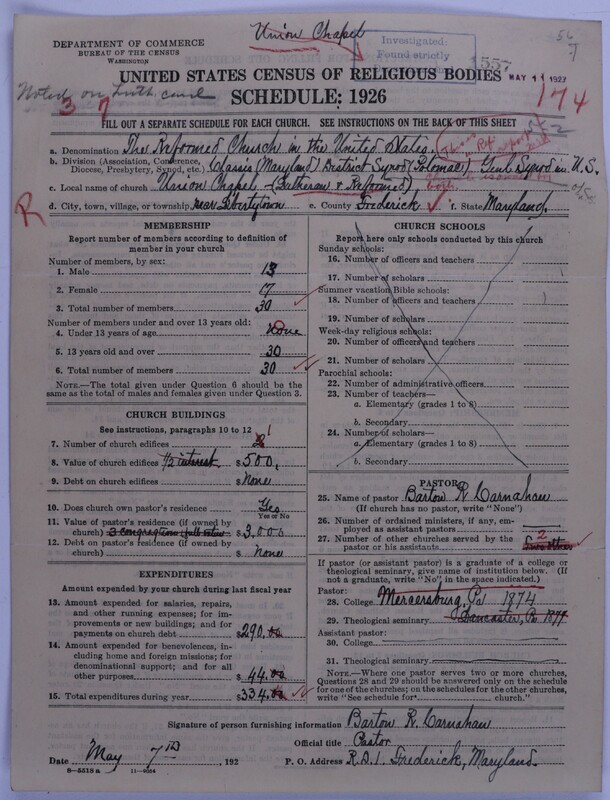 Union Chapel
DEPARTMENT OF COMMERCE
BUREAU OF THE CENSUS
WASHINGTON
Investigated:
Found strictly
1557
MAY 11 1927
UNITED STATES CENSUS OF RELIGIOUS BODIES
Noted on
3 7
SCHEDULE: 1926
174
FILL OUT A SEPARATE SCHEDULE FOR EACH CHURCH. SEE INSTRUCTIONS ON THE BACK OF THIS SHEET
a. Denomination The Reformed Church in the United States.
b. Division (Association, Conference, Diocese, Presbytery, Synod, etc.) Classis (Maryland) District Synod (Potomac), Genl Synod in U.S.
c. Local name of church Union Chapel - (Lutheran & Reformed) both
R
d. City, town, village, or township near Libertytown e. County Frederick f. State Maryland.
MEMBERSHIP
Report number of members according to definition of member in your church
Number of members, by sex:
1. Male 13
2. Female 17
3. Total number of members 30
Number of members under and over 13 years old:
4. Under 13 years of age None
5. 13 years old and over 30
6. Total number of members 30
NOTE.—The total given under Question 6 should be the same as the total of males and females given under Question 3.
CHURCH BUILDINGS
See instructions, paragraphs 10 to 12
7. Number of church edifices 1
8. Value of church edifices 1/2 interest $500.
9. Debt on church edifices $None
10. Does church own pastor's residence? Yes
Yes or No
11. Value of pastor's residence (if owned by church) 3 congregations full value $3,000
12. Debt on pastor's residence (if owned by church) $None
EXPENDITURES
Amount expended by your church during last fiscal year
13. Amount expended for salaries, repairs, and other running expenses; for improvements or new buildings; and for payments on church debt $290.00
14. Amount expended for benevolences, including home and foreign missions; for denominational support; and for all other purposes $44.00
15. Total expenditures during year $334.00
CHURCH SCHOOLS
Report here only schools conducted by this church
Sunday schools:
16. Number of officers and teachers
17. Number of scholars
Summer vacation Bible schools:
18. Number of officers and teachers
19. Number of scholars
Week-day religious schools:
20. Number of officers and teachers
21. Number of scholars
Parochial schools:
22. Number of administrative officers
23. Number of teachers—
a. Elementary (grades 1 to 8)
b. Secondary
24. Number of scholars—
a. Elementary (grades 1 to 8)
b. Secondary
PASTOR
25. Name of pastor Barton R Carnahan
(If church has no pastor, write "None")
26. Number of ordained ministers, if any, employed as assistant pastors
27. Number of other churches served by the pastor or his assistants 2
If pastor (or assistant pastor) is a graduate of a college or theological seminary, give name of institution below. (If not a graduate, write "No" in the space indicated.)
Pastor:
28. College Mercersburg, Pa 1874
29. Theological seminary Lancaster, Pa 1877
Assistant pastor:
30. College
31. Theological seminary
NOTE.—Where one pastor serves two or more churches, Questions 28 and 29 should be answered only on the schedule for one of the churches; on the schedules for the other churches, write "See schedule for church."
Signature of person furnishing information Barton R. Carnahan
Official title Pastor
Date May 7th, 192 P. O. Address R.D.1. Frederick, Maryland.
8—5518 a 11—9054